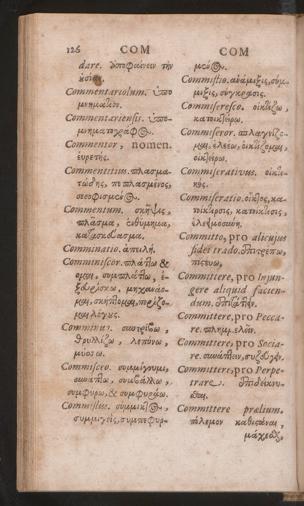 126 COM
dare. ἀποφαίνειν τὴν
Commentariolum. ὑπο
μνημάτιον.
Commentariensis. ὑπο-
μνηματογράφος.
Commentor, nomen.
εὑρετής.
Commentitius. πλασμα-
τώδης, πεπλασμένος,
Commentum. σκῆψις,
πλάσμα, ἐνθύμημα,
κατασκεύασμα,
Comminatio. ἀπειλή.
Comminiscor. πλάττω &
ομαι, συμπλάττω, ἐ-
μαι λόγους.
Comminuo. συντρίβω,
θρυλλίζω, λεπύνω,
Commisceo. συμμίγνυμι,
συνάπτω, συμβάλλω,
συμφύρω, & συμφυράω.
Commistus. σύμμικτος.
συμμιγὴς, συμπεφυρ-
COM
μένος.
Commistio. ἀνάμιξις, σύμ-
μιξις, σύγκρασις.
Commiseresco. οἰκτίζω,
κατοικτείρω.
Commiseror. σπλαγχνίζο-
μαι, ἐλεέω, οἰκτίζομαι,
οἰκτείρω.
Commiserativus. οἰκτι-
κός.
Commiseratio. οἶκτος, κα-
τοίκτισις,
ἐλεημοσύνη.
Committo, pro alicujus
fidei trado. ἐπιτρέπω,
πιστεύω,
Committere, pro Injun-
gere aliquid facien-
dum. ἐπιτάττειν.
Committere, pro Pecca-
re. πλημμελεῖν.
Committere, pro Socia-
re. συνάπτειν,
Committere, pro Perpe-
trare. ἐπιδείκνυ-
σθαι.
Committere prælium.
πόλεμον καθιστάναι,